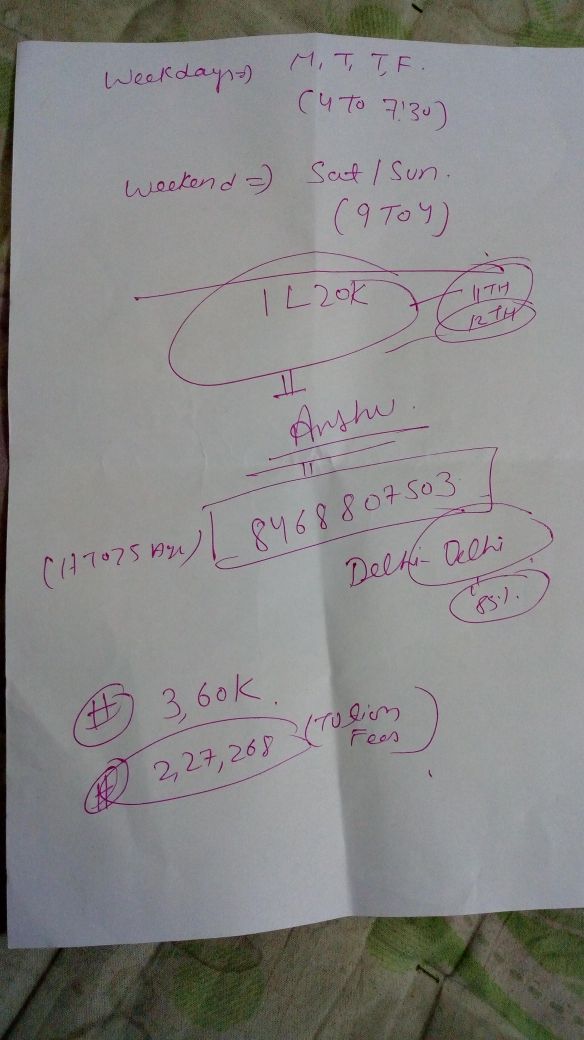 Weekdays => M, T, T, F.
(4 To 7:30)
Weekend => Sat / Sun.
(9 To 4)
1 L 20K
11TH
12TH
Anshu.
8468807503
Delhi - Delhi
85%.
# 3,60K.
# 2,27,268 (Tution
Fees)